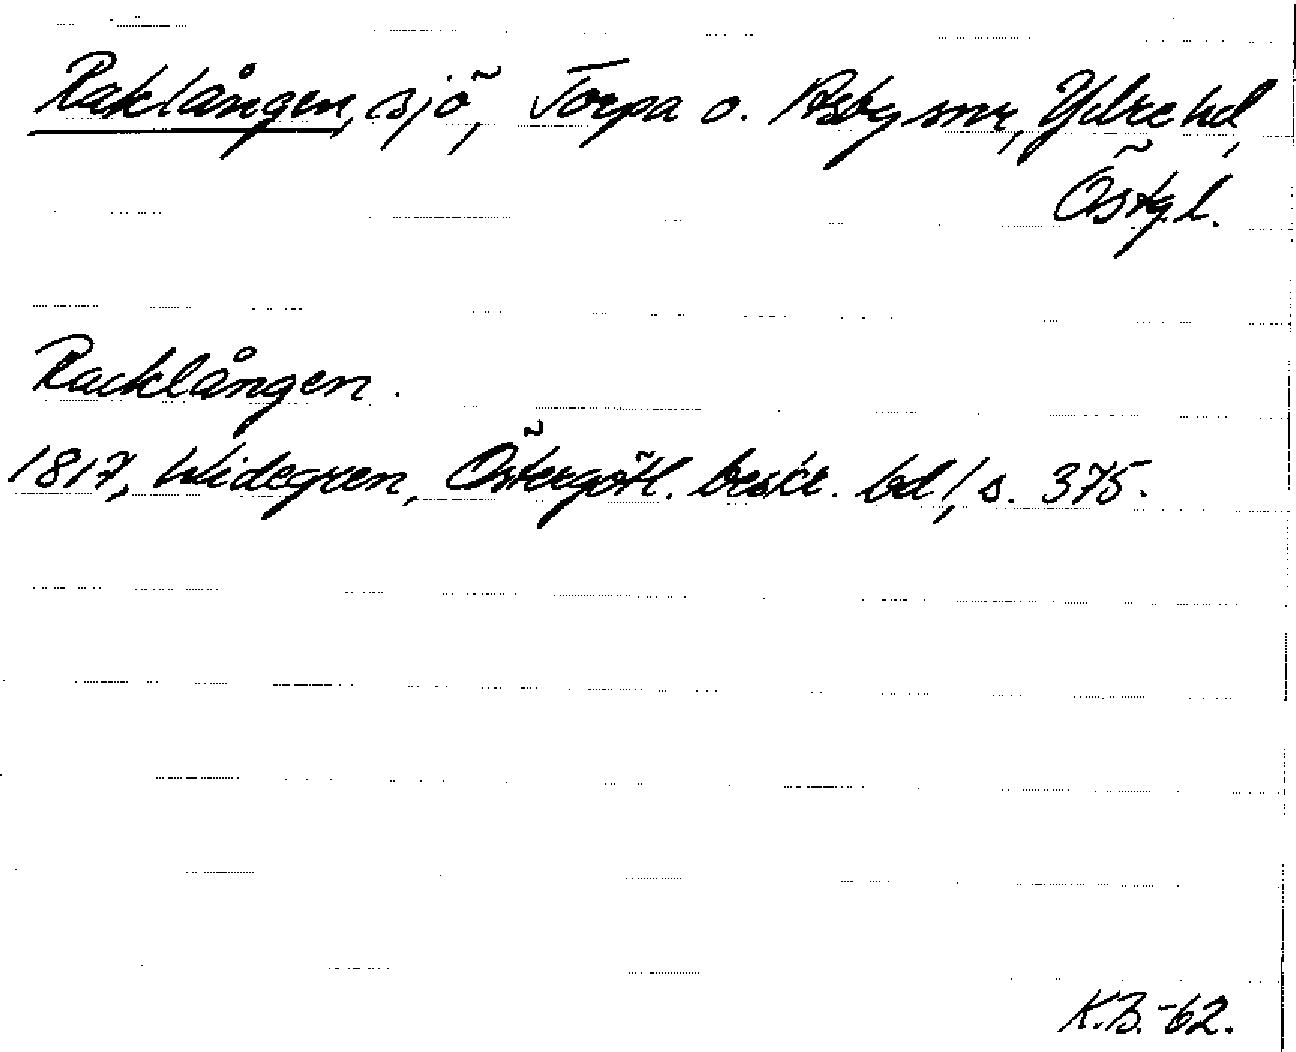 Raklången, sjö, Torpa o. Asby snr, Ydre hd,
Östg.l.
Racklången.
1817, Widegren, Östergötl. beskr. bd 1, s. 375.
K.B. -62.